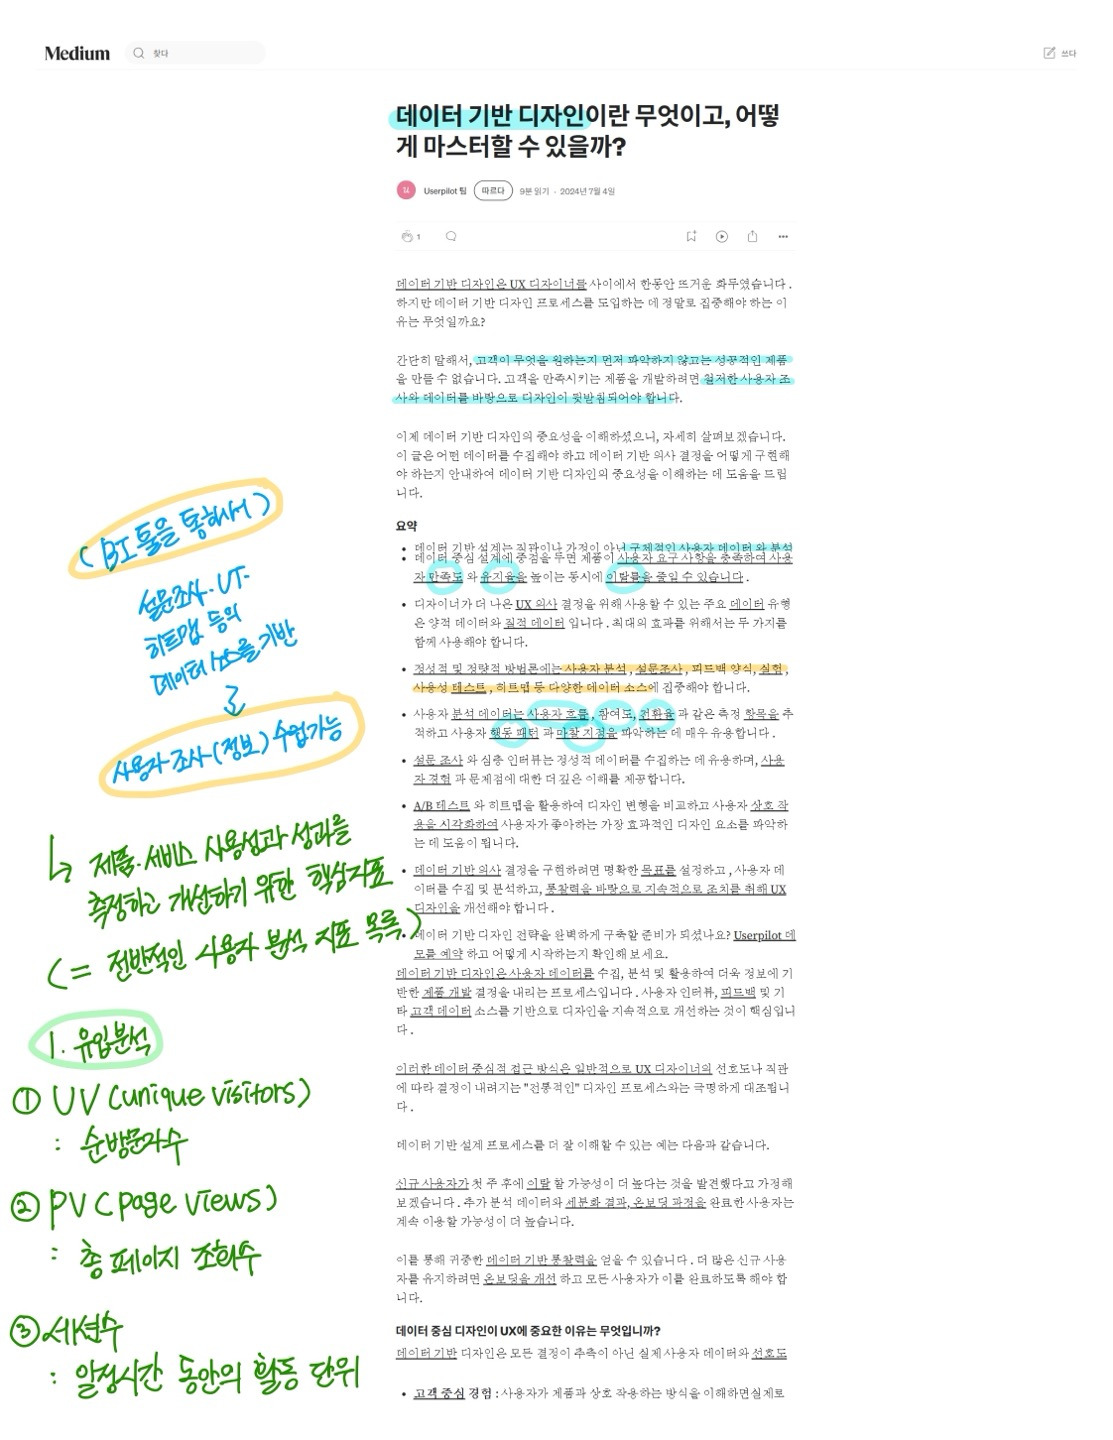 Medium
찾다
쓰다
데이터 기반 디자인이란 무엇이고, 어떻
게 마스터할 수 있을까?
Userpilot 팀
따르다
9분 읽기 · 2024년 7월 4일
1
데이터 기반 디자인은 UX 디자이너들 사이에서 한동안 뜨거운 화두였습니다 .
하지만 데이터 기반 디자인 프로세스를 도입하는 데 정말로 집중해야 하는 이
유는 무엇일까요?
간단히 말해서, 고객이 무엇을 원하는지 먼저 파악하지 않고는 성공적인 제품
을 만들 수 없습니다. 고객을 만족시키는 제품을 개발하려면 철저한 사용자 조
사와 데이터를 바탕으로 디자인이 뒷받침되어야 합니다.
이제 데이터 기반 디자인의 중요성을 이해하셨으니, 자세히 살펴보겠습니다.
이 글은 어떤 데이터를 수집해야 하고 데이터 기반 의사 결정을 어떻게 구현해
야 하는지 안내하여 데이터 기반 디자인의 중요성을 이해하는 데 도움을 드립
니다.
요약
• 데이터 기반 설계는 직관이나 가정이 아닌 구체적인 사용자 데이터 와 분석
• 데이터 중심 설계에 중점을 두면 제품이 사용자 요구 사항을 충족하여 사용
자 만족도 와 유지율을 높이는 동시에 이탈률을 줄일 수 있습니다 .
• 디자이너가 더 나은 UX 의사 결정을 위해 사용할 수 있는 주요 데이터 유형
은 양적 데이터와 질적 데이터 입니다 . 최대의 효과를 위해서는 두 가지를
함께 사용해야 합니다.
• 정성적 및 정량적 방법론에는 사용자 분석 , 설문조사 , 피드백 양식, 실험 ,
사용성 테스트 , 히트맵 등 다양한 데이터 소스에 집중해야 합니다.
• 사용자 분석 데이터는 사용자 흐름 , 참여도, 전환율 과 같은 측정 항목을 추
적하고 사용자 행동 패턴 과 마찰 지점을 파악하는 데 매우 유용합니다 .
• 설문 조사 와 심층 인터뷰는 정성적 데이터를 수집하는 데 유용하며, 사용
자 경험 과 문제점에 대한 더 깊은 이해를 제공합니다.
• A/B 테스트 와 히트맵을 활용하여 디자인 변형을 비교하고 사용자 상호 작
용을 시각화하여 사용자가 좋아하는 가장 효과적인 디자인 요소를 파악하
는 데 도움이 됩니다.
• 데이터 기반 의사 결정을 구현하려면 명확한 목표를 설정하고 , 사용자 데
이터를 수집 및 분석하고, 통찰력을 바탕으로 지속적으로 조치를 취해 UX
디자인을 개선해야 합니다 .
• 데이터 기반 디자인 전략을 완벽하게 구축할 준비가 되셨나요? Userpilot 데
모를 예약 하고 어떻게 시작하는지 확인해 보세요.
데이터 기반 디자인은 사용자 데이터를 수집, 분석 및 활용하여 더욱 정보에 기
반한 제품 개발 결정을 내리는 프로세스입니다 . 사용자 인터뷰, 피드백 및 기
타 고객 데이터 소스를 기반으로 디자인을 지속적으로 개선하는 것이 핵심입니
다 .
이러한 데이터 중심적 접근 방식은 일반적으로 UX 디자이너의 선호도나 직관
에 따라 결정이 내려지는 "전통적인" 디자인 프로세스와는 극명하게 대조됩니
다 .
데이터 기반 설계 프로세스를 더 잘 이해할 수 있는 예는 다음과 같습니다.
신규 사용자가 첫 주 후에 이탈 할 가능성이 더 높다는 것을 발견했다고 가정해
보겠습니다 . 추가 분석 데이터와 세분화 결과, 온보딩 과정을 완료한 사용자는
계속 이용할 가능성이 더 높습니다.
이를 통해 귀중한 데이터 기반 통찰력을 얻을 수 있습니다 . 더 많은 신규 사용
자를 유지하려면 온보딩을 개선 하고 모든 사용자가 이를 완료하도록 해야 합
니다.
데이터 중심 디자인이 UX에 중요한 이유는 무엇입니까?
데이터 기반 디자인은 모든 결정이 추측이 아닌 실제 사용자 데이터와 선호도
• 고객 중심 경험 : 사용자가 제품과 상호 작용하는 방식을 이해하면 실제로
(BI 툴을 통해서)
설문조사·UT·
히트맵 등의
데이터 소스를 기반
사용자 조사(정보) 수집가능
↳ 제품·서비스 사용성과 성과를
측정하고 개선하기 위한 핵심지표
(= 전반적인 사용자 분석 지표 목록)
1. 유입분석
① UV (unique visitors)
: 순방문자수
② PV (page views)
: 총 페이지 조회수
③ 세션수
: 일정시간 동안의 활동 단위